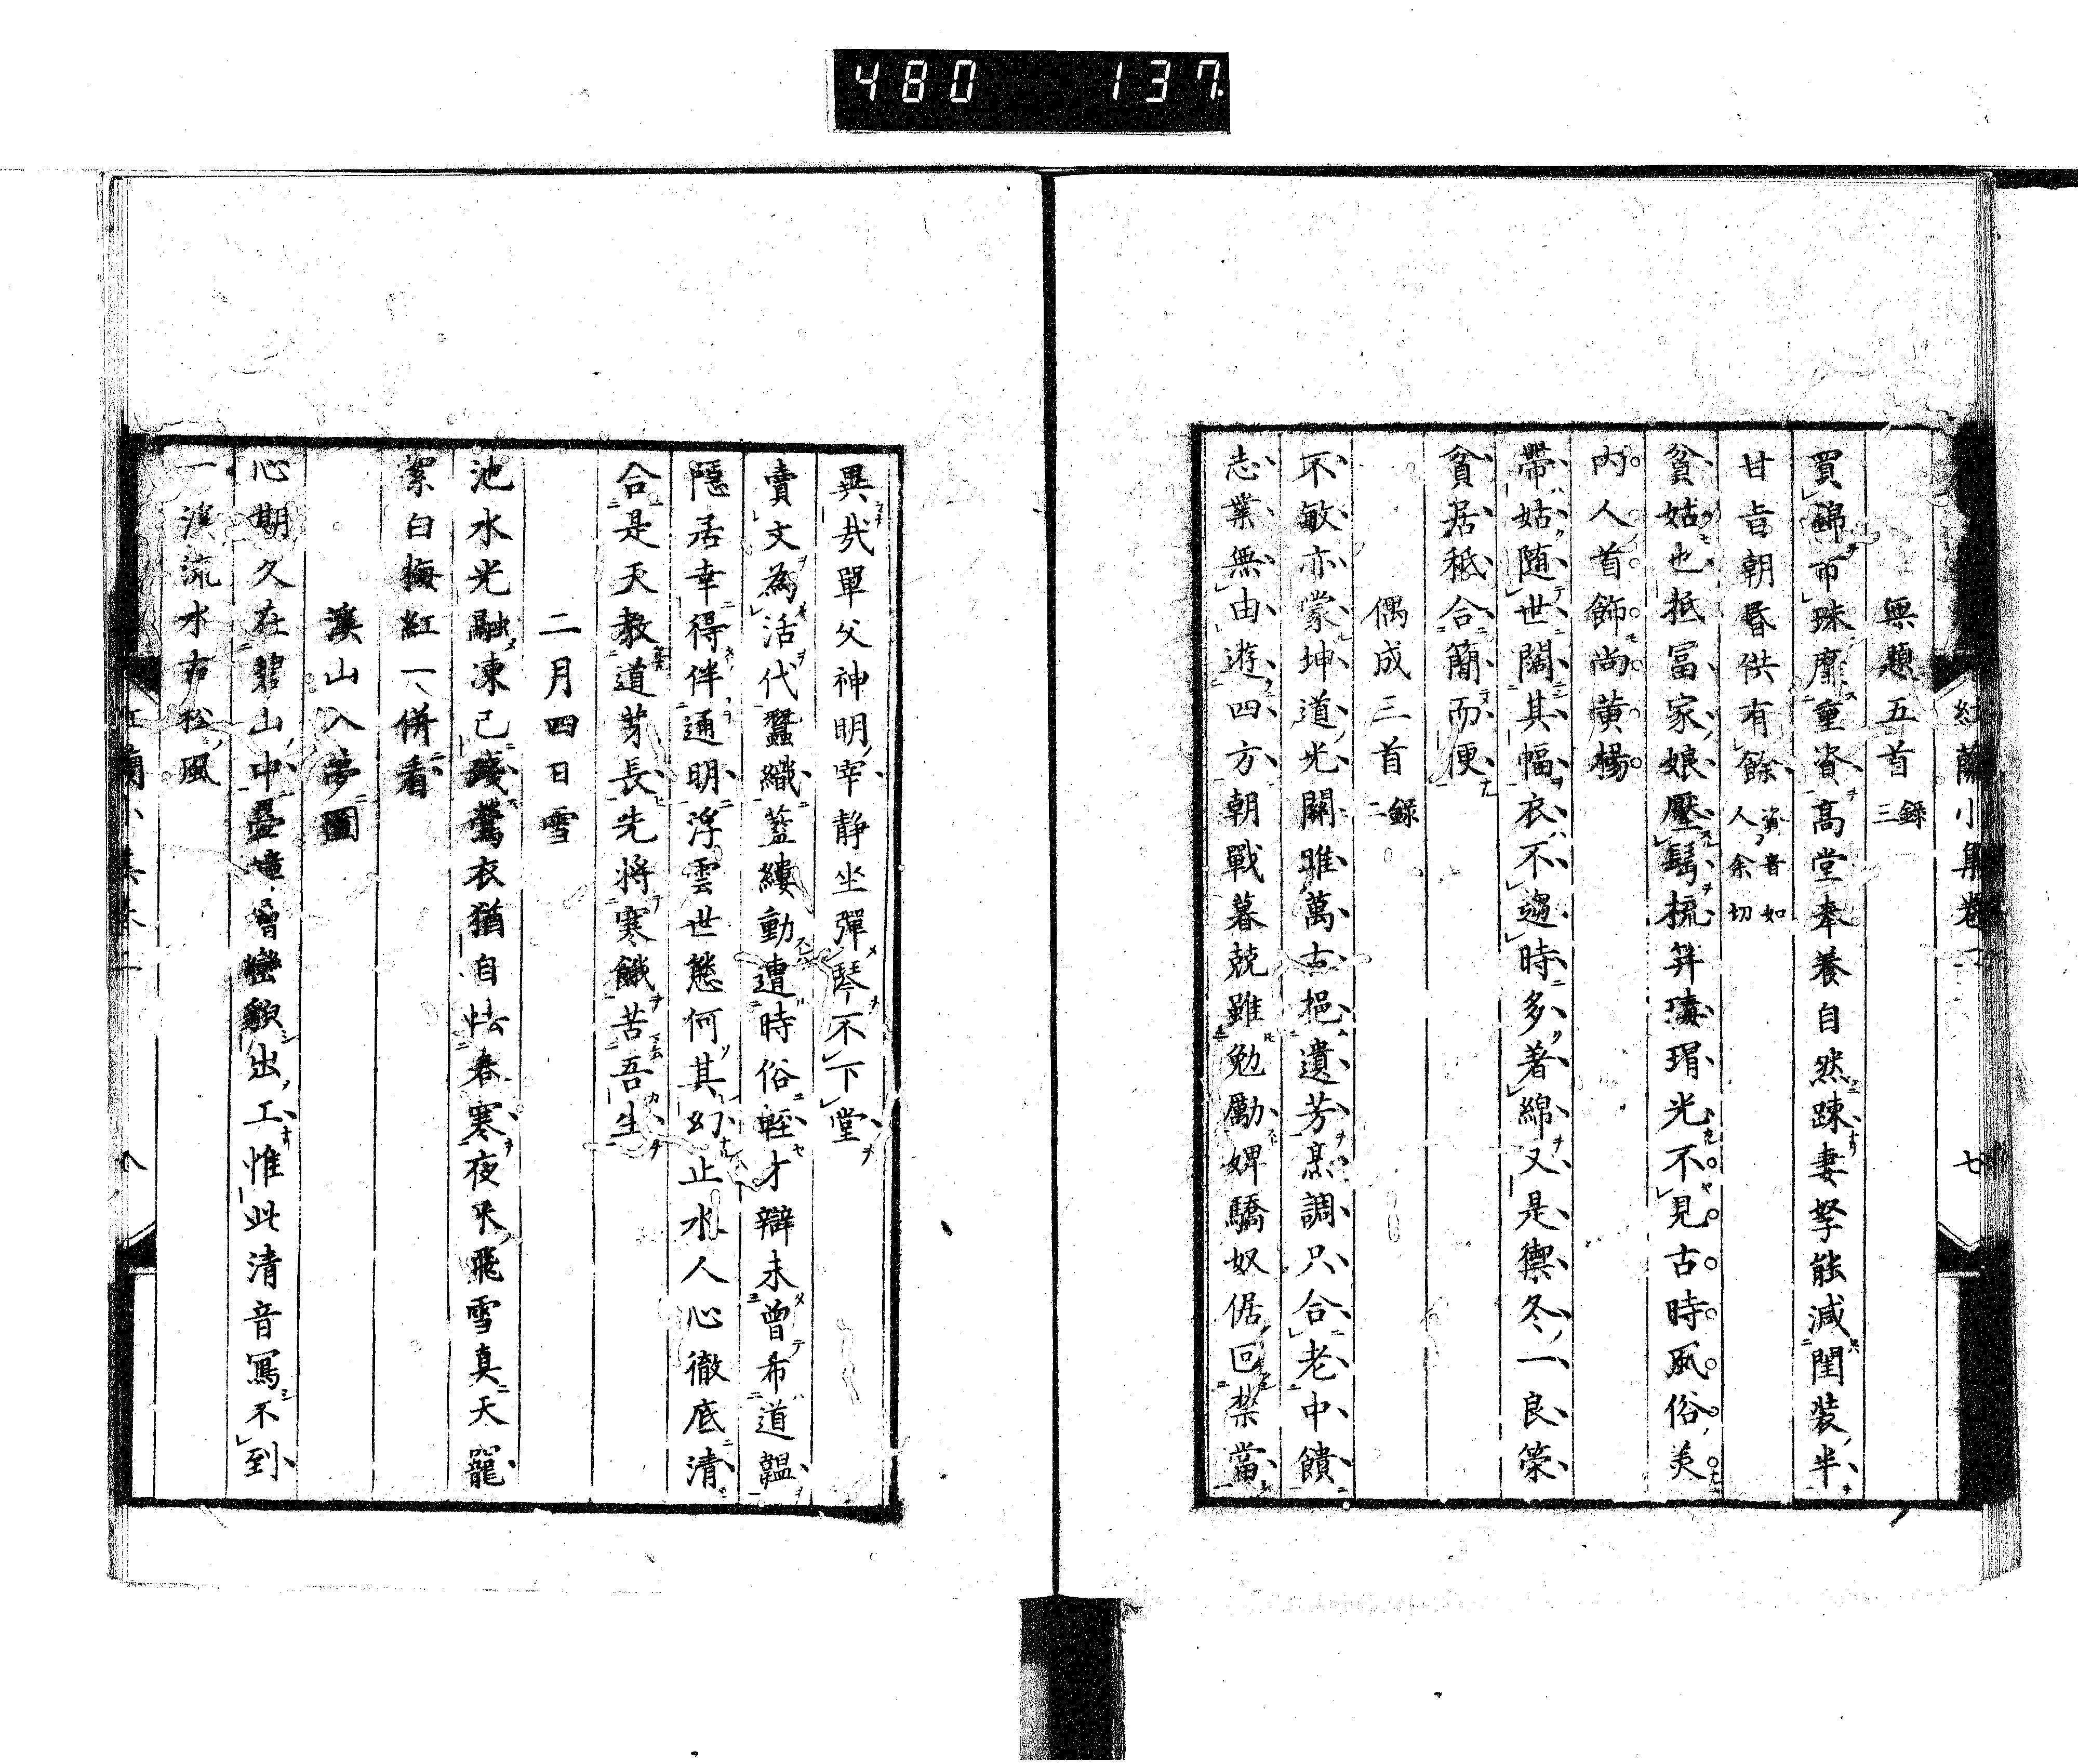 480 137
紅蘭小集卷一 七
無題五首 錄三
買錦市珠靡重資高堂奉養自然踈妻孥能減閨裝半
甘旨朝昏供有餘 資音如人余切
貧姑也抵冨家娘壓髻梳笄瑇瑁光不見古時風俗美
內人首飾尚黄楊
帶姑随世闊其幅衣不趨時多著綿又是禦冬一良策
貧居秪合簡而便
偶成三首 錄二
不敏亦蒙坤道光關雎萬古挹遺芳烹調只合老中饋
志業無由遊四方朝戰暮兢雖勉勵婢驕奴倨回禁當
異㢤單父神明宰静坐彈琴不下堂
賣文為活代蠶織藍縷動遭時俗輕才辯未曾希道韞
隱居幸得伴通明浮雲世態何其幻止水人心徹底清
合是天教道芽長先將寒餓苦吾生
二月四日雪
池水光融凍已殘鶯衣猶自怯春寒夜来飛雪真天寵
絮白梅紅一併看
溪山入夢圖
心期久在碧山中疊嶂層巒貌出工惟此清音寫不到
一溪流水古松風
紅蘭小集卷一 八